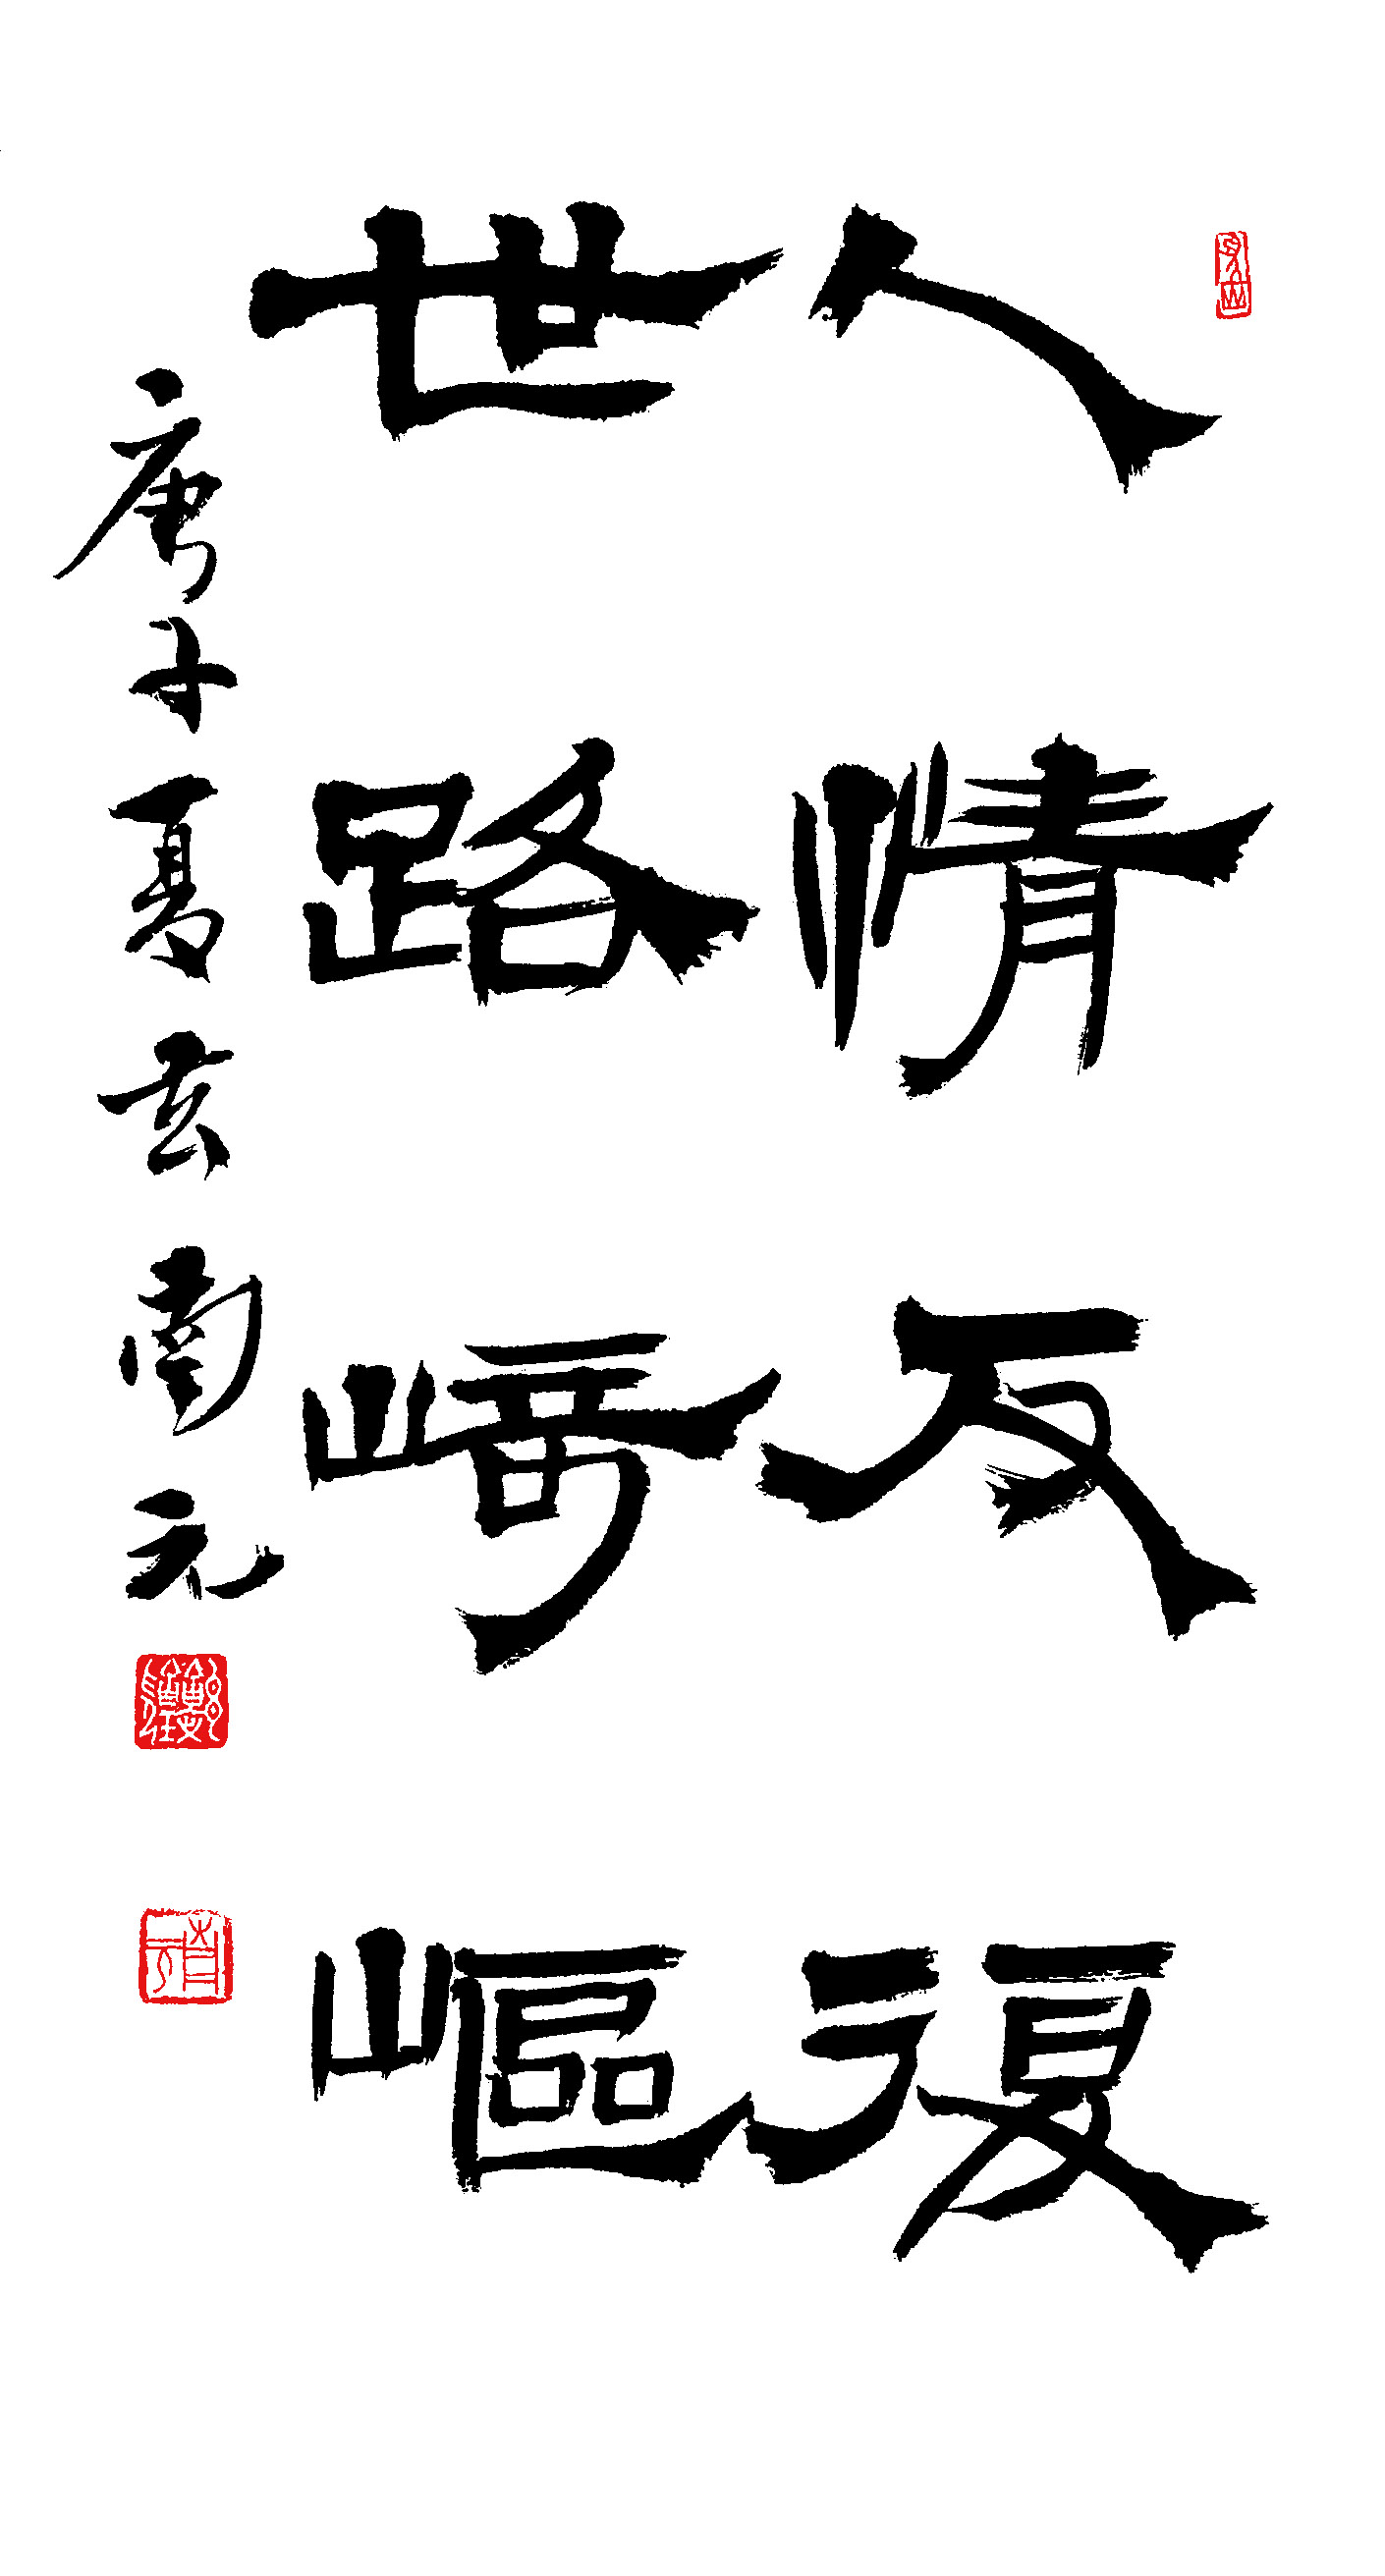 人情反復
世路崎嶇
庚子夏玄南元